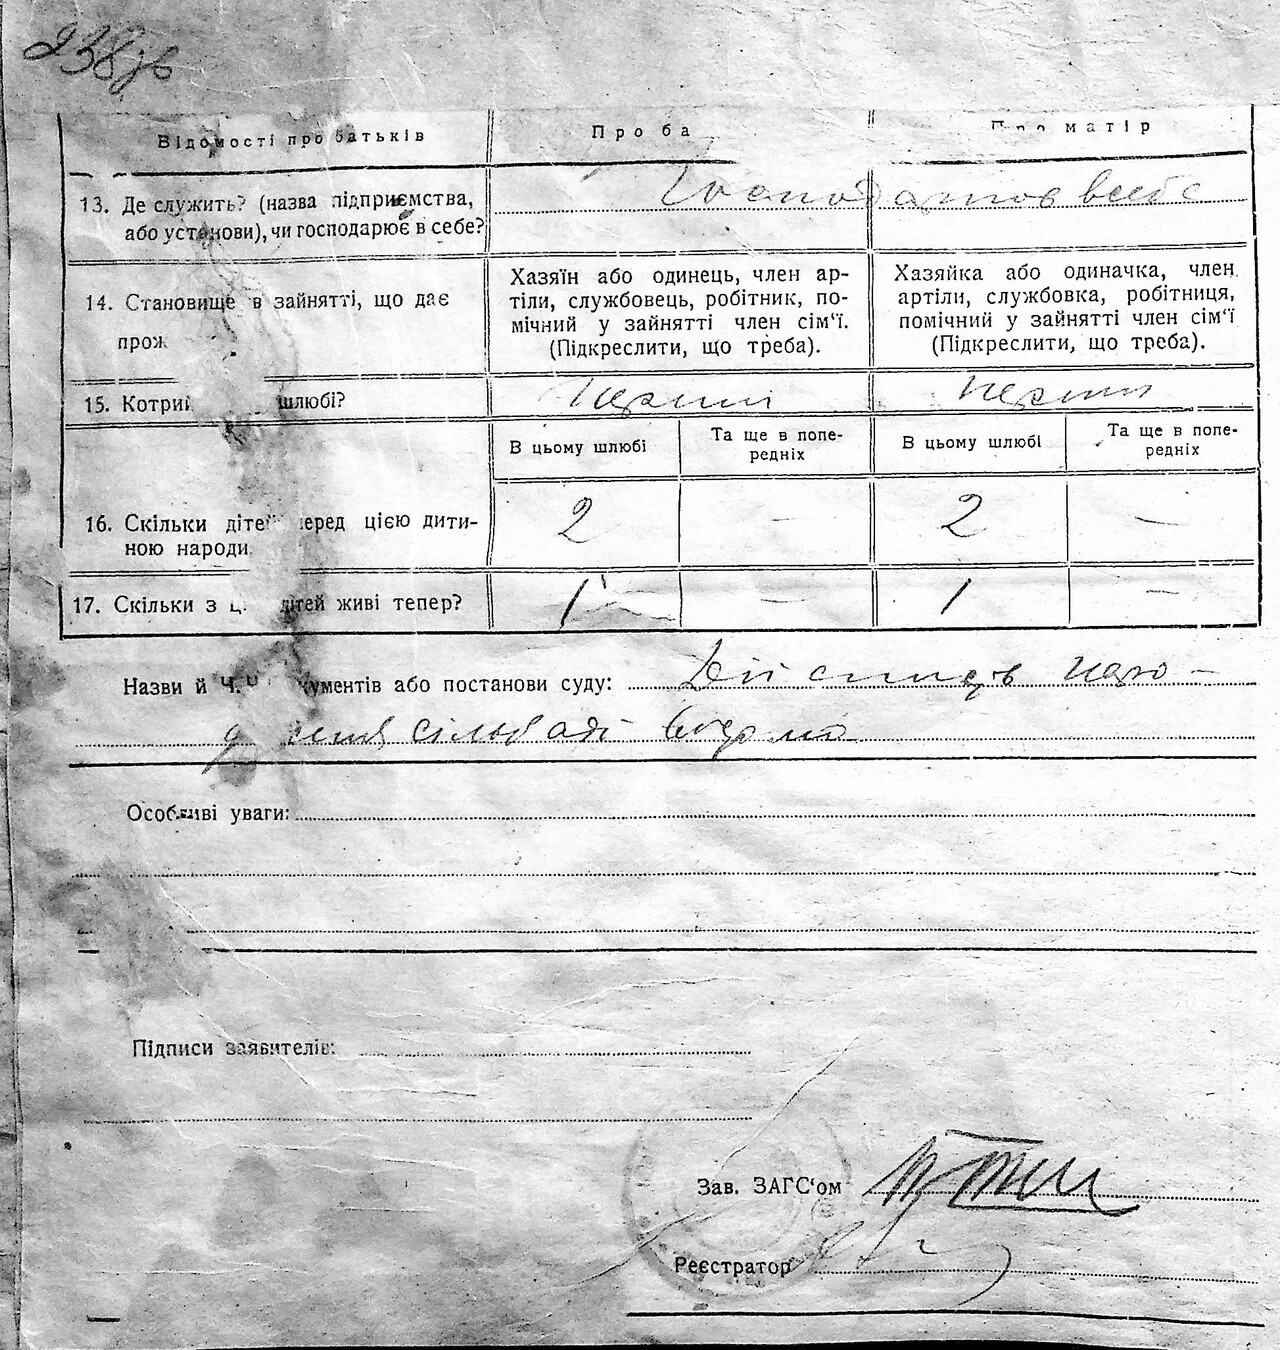 238зв
Відомості про батьків
Про ба
Про матір
13. Де служить? (назва підприємства,
або установи), чи господарює в себе?
Господарюв в себе
14. Становище в зайнятті, що дає
прож
Хазяїн або одинець, член ар-
тіли, службовець, робітник, по-
мічний у зайнятті член сім‘ї.
(Підкреслити, що треба).
Хазяйка або одиначка, член
артіли, службовка, робітниця,
помічний у зайнятті член сім‘ї
(Підкреслити, що треба).
15. Котрий шлюбі?
В цьому шлюбі
Та ще в попе-
редніх
В цьому шлюбі
Та ще в попе-
редніх
16. Скільки дітей перед цією дити-
ною народи
2
—
2
—
17. Скільки з ц дітей живі тепер?
1
—
1
—
Назви й Ч. ументів або постанови суду:
сільради
Особливі уваги:
Підписи заявителів:
Зав. ЗАГС‘ом
Реєстратор